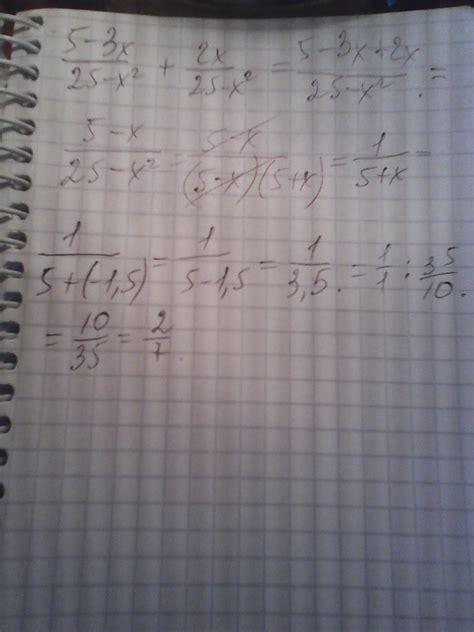 (5-3x)/(25-x²) + 2x/(25-x²) = (5-3x+2x)/(25-x²) =
(5-x)/(25-x²) = (5-x)/((5-x)(5+x)) = 1/(5+x) =
1/(5+(-1,5)) = 1/(5-1,5) = 1/3,5 = 1/1 : 35/10
= 10/35 = 2/7